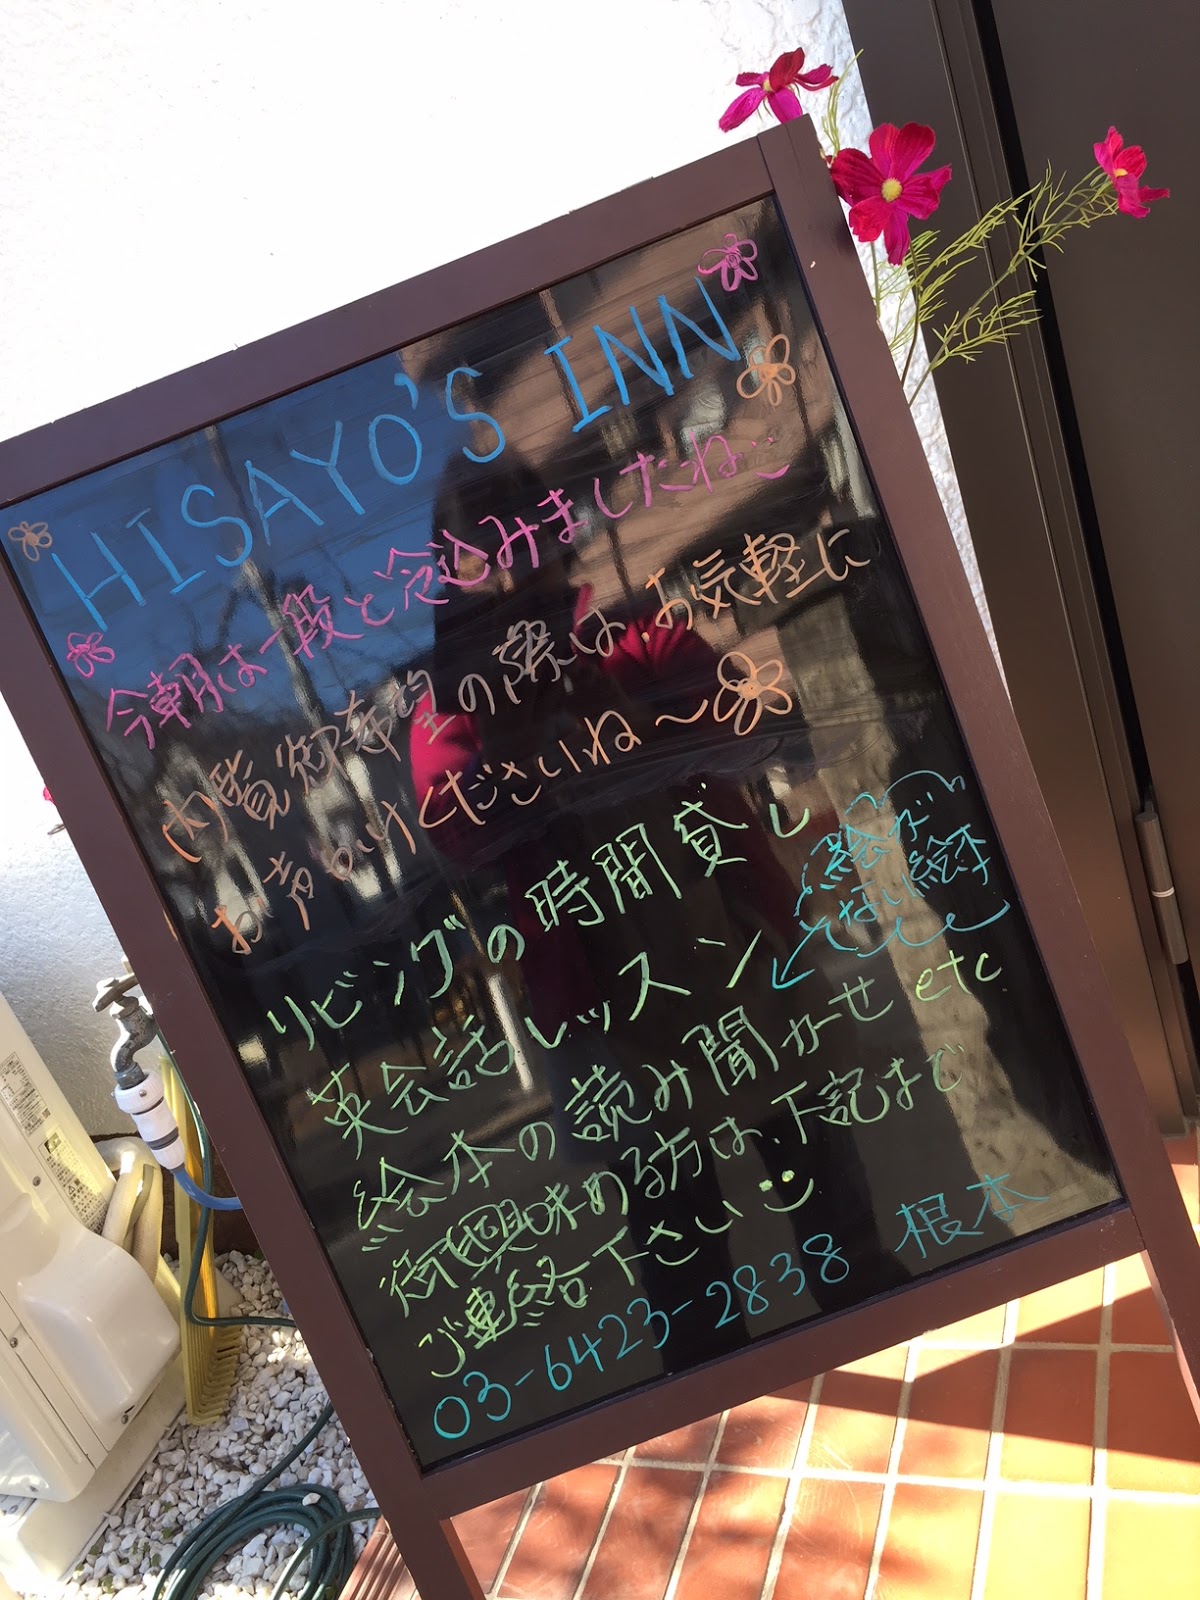 HISAYO'S INN
今朝は一段と冷込みましたね
内覧御希望の際は、お気軽に
お声かけくださいね〜
リビングの時間貸し
英会話レッスン
絵が
ない絵本
絵本の読み聞かせ etc
御興味ある方は、下記まで
ご連絡下さい
03-6423-2838 根本